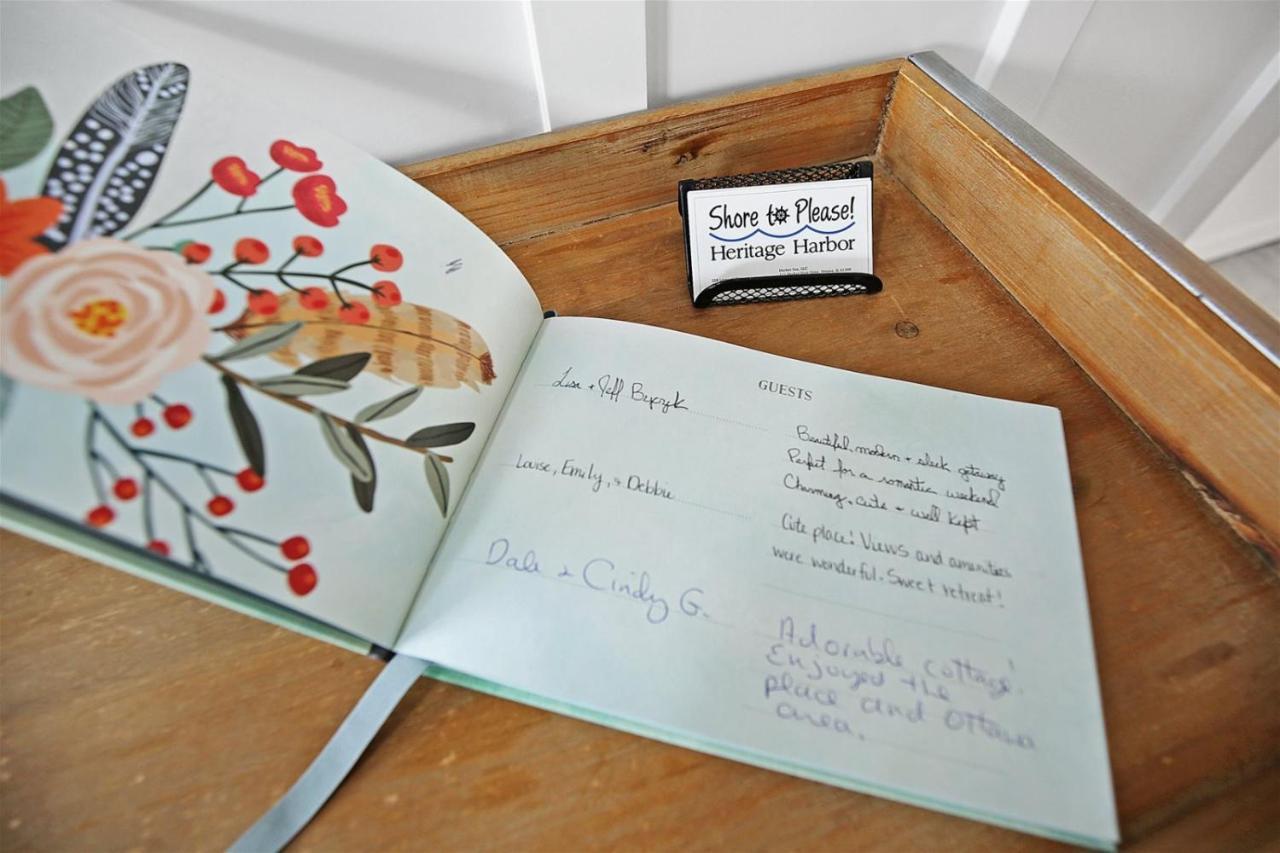 Shore to Please!
Heritage Harbor
GUESTS
Lisa + Jeff
Beautiful, modern + sleek getaway
Perfect for a romantic weekend
Charming, cute + well kept
Louise, Emily, & Debbie
Cute place! Views and amenities
were wonderful. Sweet retreat!
Dale + Cindy G.
Adorable cottage!
Enjoyed the
place and Ottawa
area.